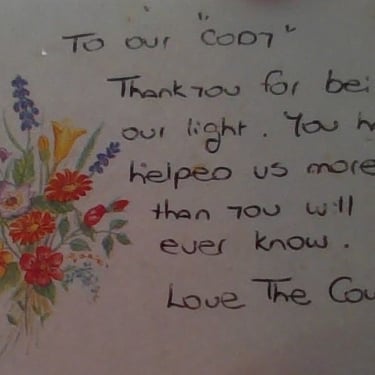 To our "CODY"
Thank you for bei
our light. You h
helped us more
than you will
ever know.
Love The Cou